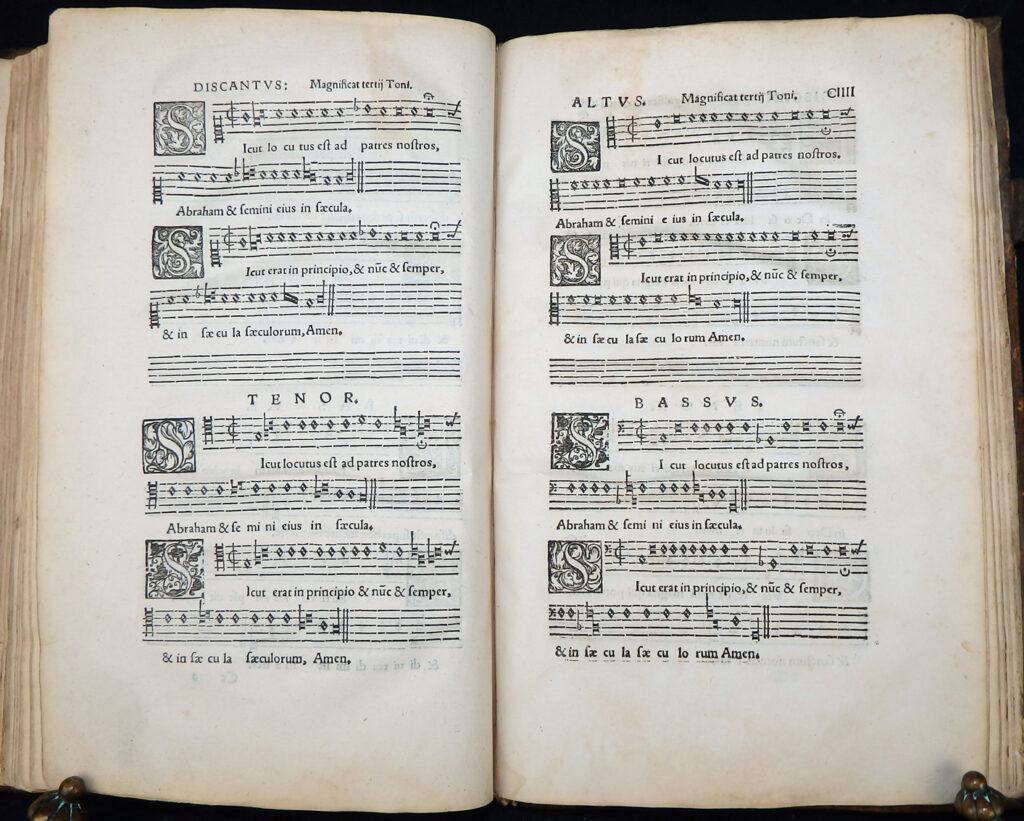 DISCANTVS: Magnificat tertij Toni.
SIcut lo cu tus est ad patres nostros,
Abraham & semini eius in sæcula.
SIcut erat in principio, & nũc & semper,
& in sæ cu la sæculorum, Amen.
TENOR.
SIcut locutus est ad patres nostros,
Abraham & se mi ni eius in sæcula.
SIcut erat in principio & nũc & semper,
& in sæ cu la sæculorum, Amen.
ALTVS. Magnificat tertij Toni. CIIII
SI cut locutus est ad patres nostros.
Abraham & semini e ius in sæcula.
SIcut erat in principio, & nũc & semper,
& in sæ cu la sæ cu lo rum Amen.
BASSVS.
SI cut locutus est ad patres nostros,
Abraham & semi ni eius in sæcula.
SIcut erat in principio, & nũc & semper,
& in sæ cu la sæ cu lo rum Amen.